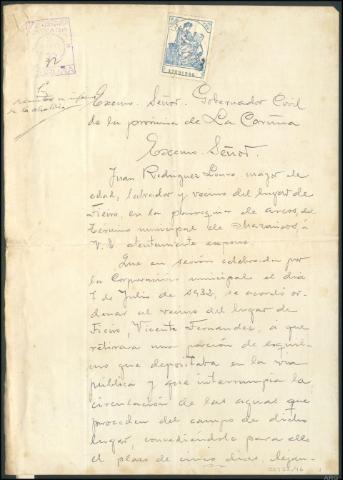 Excmo. Señor. Gobernador Civil
de la provincia de La Coruña
Excmo. Señor.
Juan Rodriguez mayor de
edad, labrador y vecino del lugar de
en la parroquia de Arcos, del
término municipal de Mazaricos, á
V. E. atentamente expone:
Que en sesión celebrada por
la Corporación municipal el dia
1 de Julio de 1932, se acordó or-
denar al vecino del lugar de
Vicente Fernandez, a que
retirara una porción de esquil-
mo que depositaba en la via
pública y que interrumpía la
circulación de las aguas que
proceden del campo de dicho
lugar, concediendole para ello
el plazo de cinco dias,